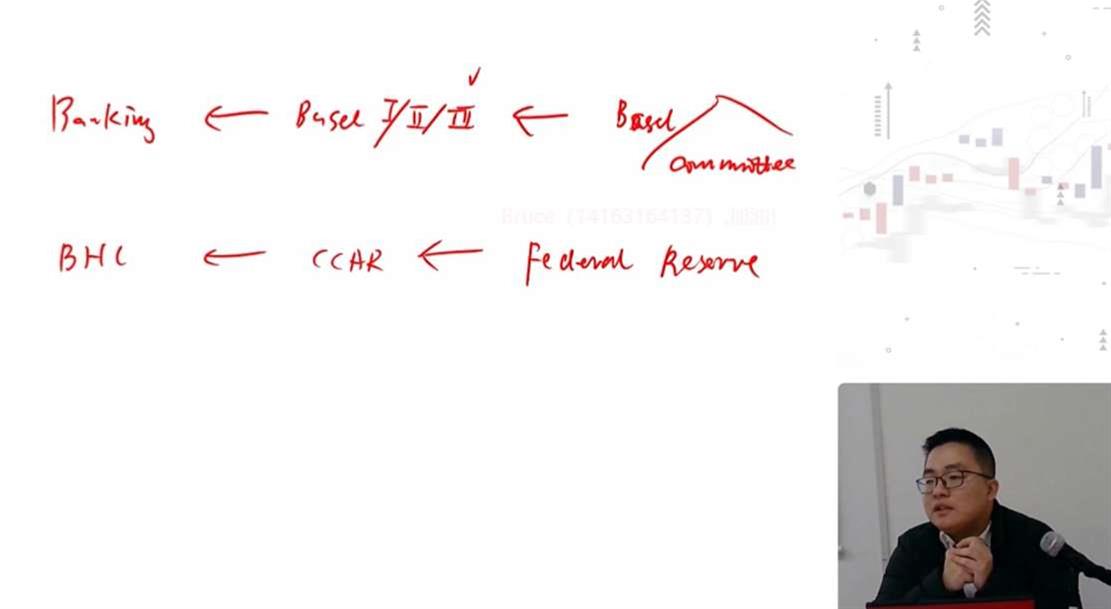 Banking ← Basel I/II/III ← Basel Committee
Bruce (14163164137)
BHC ← CCAR ← Federal Reserve